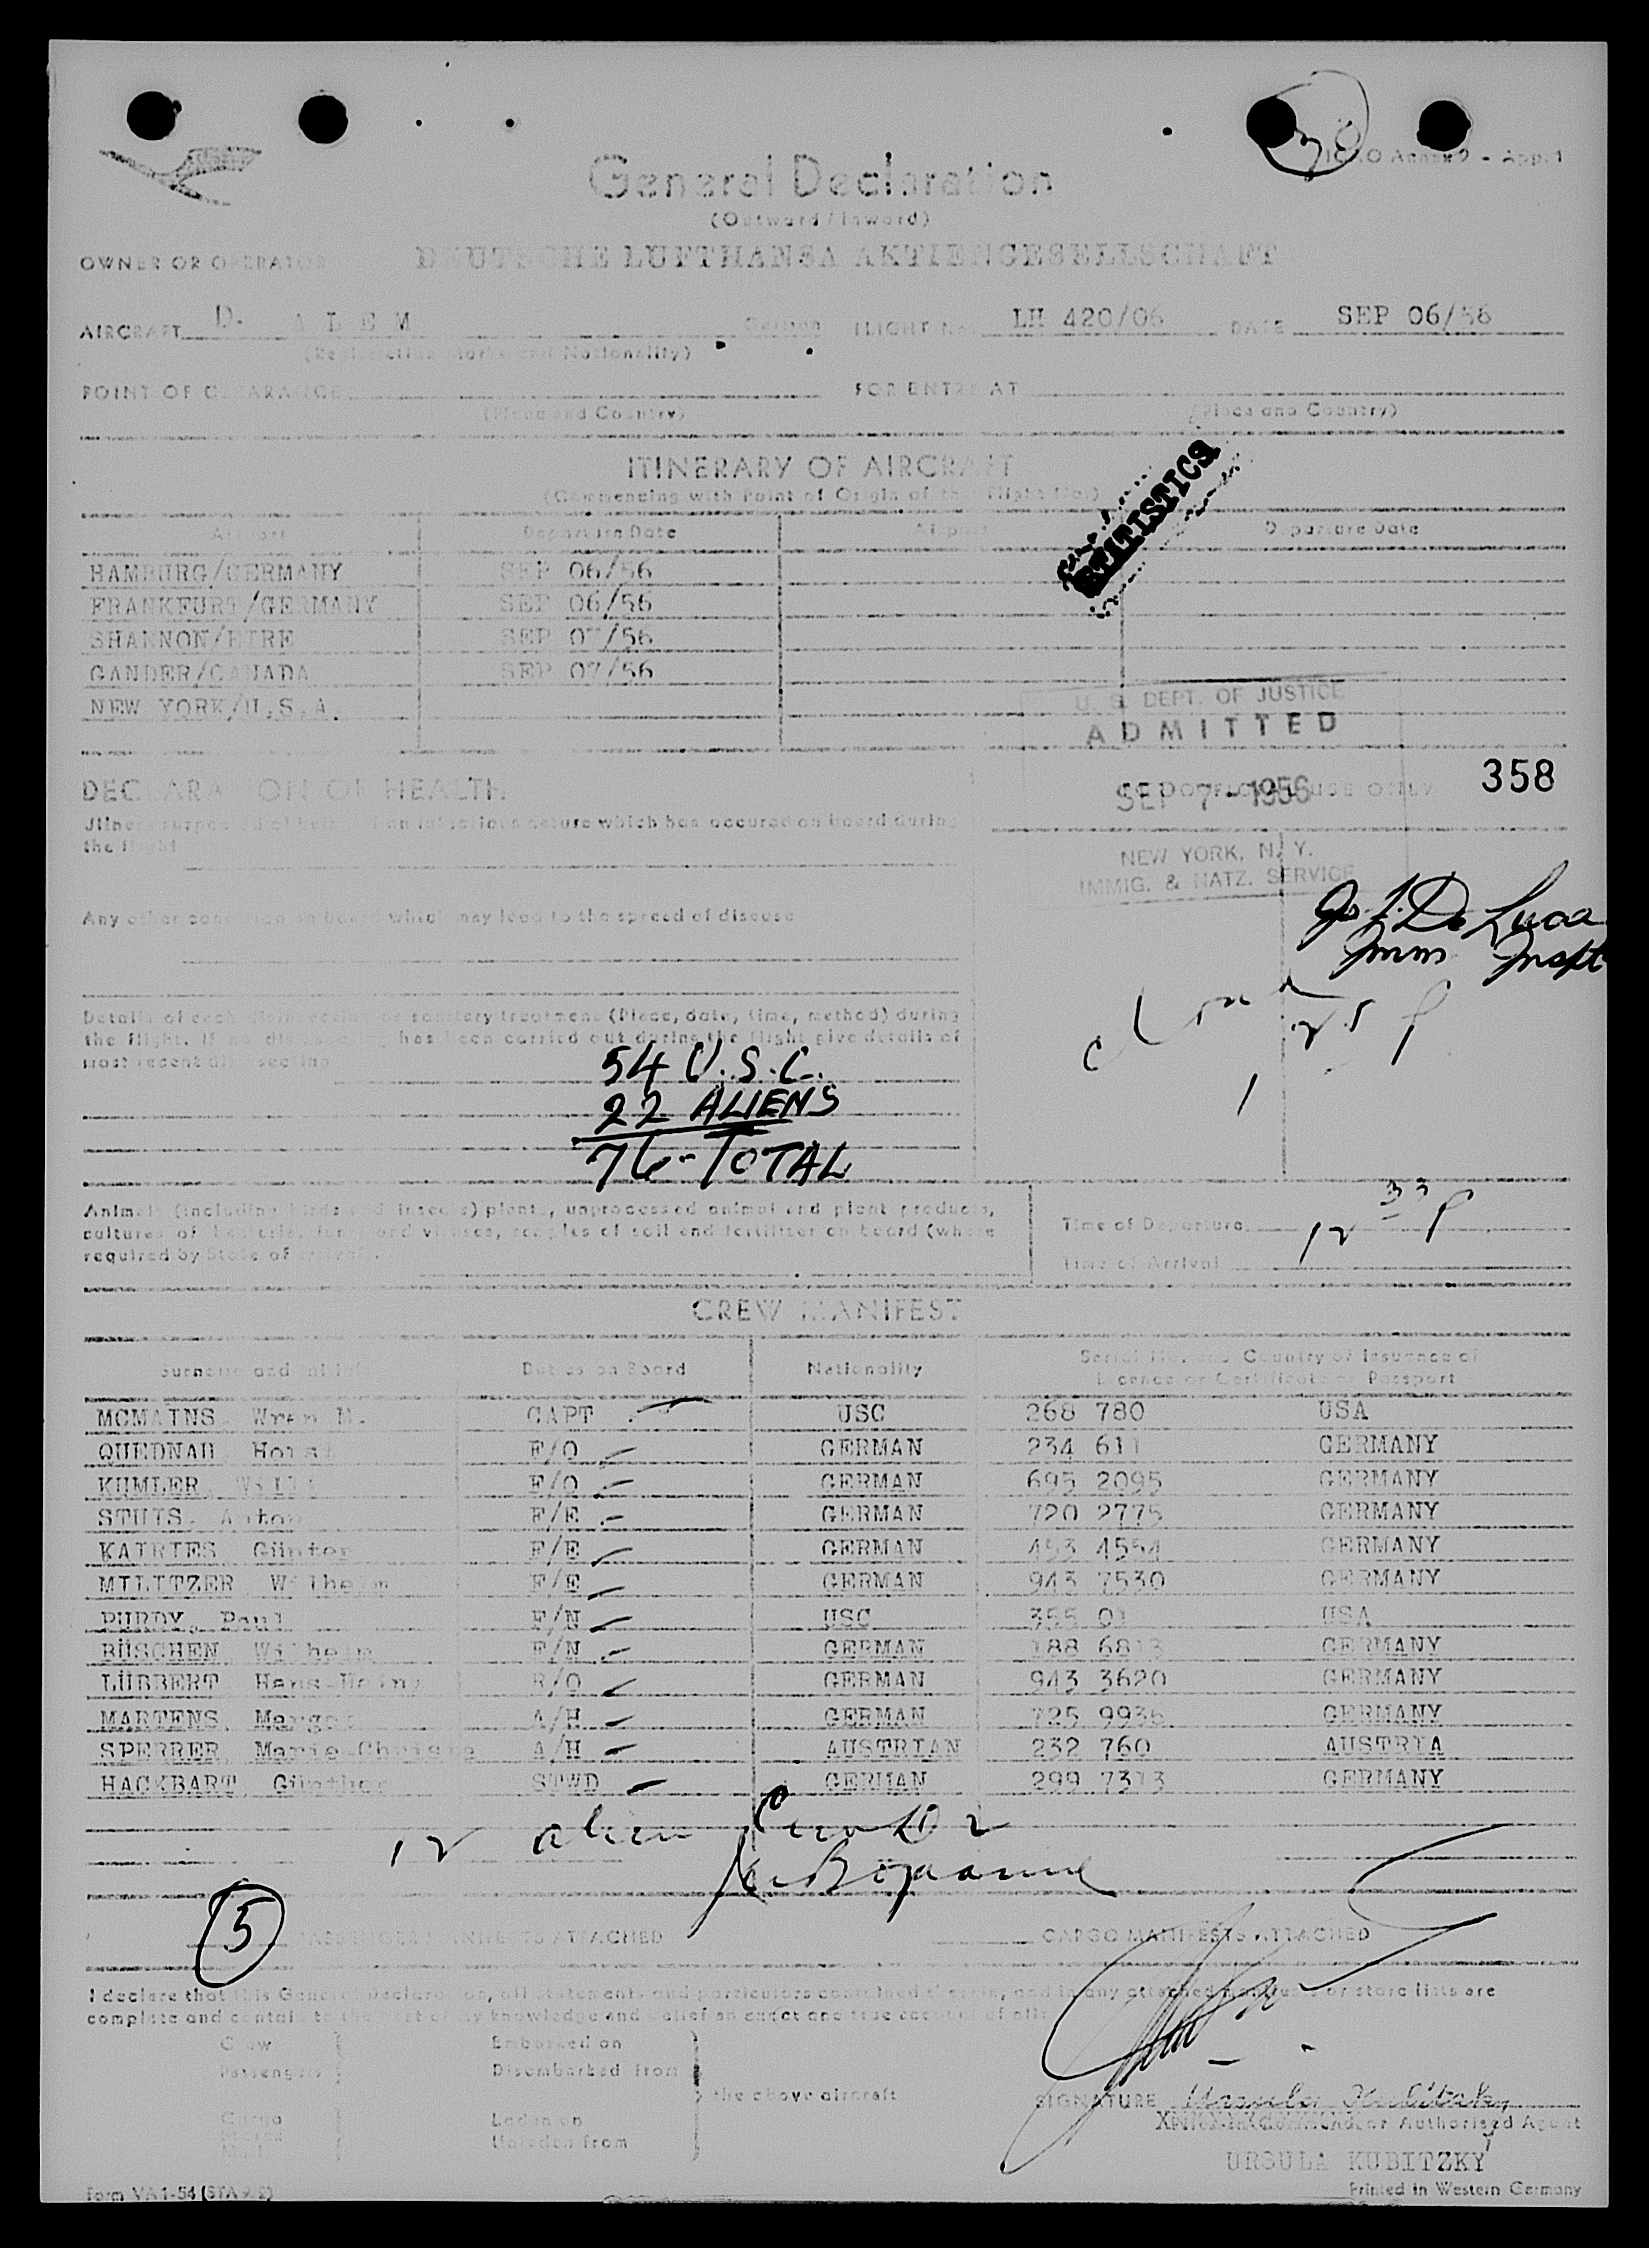 30 ICAO Annex 9 - App. 1
General Declaration
(Outward / Inward)
OWNER OR OPERATOR DEUTSCHE LUFTHANSA AKTIENGESELLSCHAFT
AIRCRAFT D- ALEM German FLIGHT No. LH 420/06 DATE SEP 06/56
(Registration Marks and Nationality)
POINT OF CLEARANCE FOR ENTRY AT
(Place and Country) (Place and Country)
ITINERARY OF AIRCRAFT
(Commencing with Point of Origin of the Flight No.)
STATISTICS
Airport Departure Date Airport Departure Date
HAMBURG/GERMANY SEP 06/56
FRANKFURT/GERMANY SEP 06/56
SHANNON/EIRE SEP 07/56
GANDER/CANADA SEP 07/56
NEW YORK/U.S.A.
U. S. DEPT. OF JUSTICE
ADMITTED
DECLARATION OF HEALTH FOR OFFICIAL USE ONLY 358
SEP 7 - 1956
which has occured on board during
the flight
NEW YORK, N. Y.
IMMIG. & NATZ. SERVICE
Any other condition on board which may lead to the spread of disease
De Luca
Imm Inspt
Details of each disinsecting or sanitary treatment (Place, date, time, method) during
the flight. If no disinsecting has been carried out during the flight give details of
most recent disinsecting
54 U.S.C.
22 ALIENS
76 - TOTAL
Animals (including birds and insects) plants, unprocessed animal and plant products,
cultures of bacteria, fungi and viruses, samples of soil and fertilizer on board (where
required by State of Arrival).
Time of Departure 12 33 p
Time of Arrival
CREW MANIFEST
Surname and Initials Duties on Board Nationality Serial No. and Country of Issuance of
Licence or Certificate or Passport
MCMAINS Wren M. CAPT USC 268 780 USA
QUEDNAU Horst F/O GERMAN 234 611 GERMANY
KUMLER, Willi F/O GERMAN 695 2095 GERMANY
STUIS, Anton F/E GERMAN 720 2775 GERMANY
KAIRIES Günter F/E GERMAN 493 4554 GERMANY
MILITZER Wilhelm F/E GERMAN 943 7530 GERMANY
PURDY, Paul F/N USC 355 01 USA
BÜSCHEN Wilhelm F/N GERMAN 188 6813 GERMANY
LÜBBERT Hans-Heinz R/O GERMAN 943 3620 GERMANY
MARTENS Margot A/H GERMAN 725 9936 GERMANY
SPERRER Marie-Christe A/H AUSTRIAN 232 760 AUSTRIA
HACKBART Günther STWD GERMAN 299 7313 GERMANY
12 alien
5 PASSENGER MANIFESTS ATTACHED CARGO MANIFESTS ATTACHED
I declare that this General Declaration, all statements and particulars contained therein, and in any attached manifests or store lists are
complete and contain to the best of my knowledge and belief an exact and true account of all:
Crew Embarked on
Passengers Disembarked from
the above aircraft
Cargo Laden on
Mail Unladen from
SIGNATURE Ursula Kubitzky
or Authorised Agent
URSULA KUBITZKY
Form VA 1-54 Printed in Western Germany